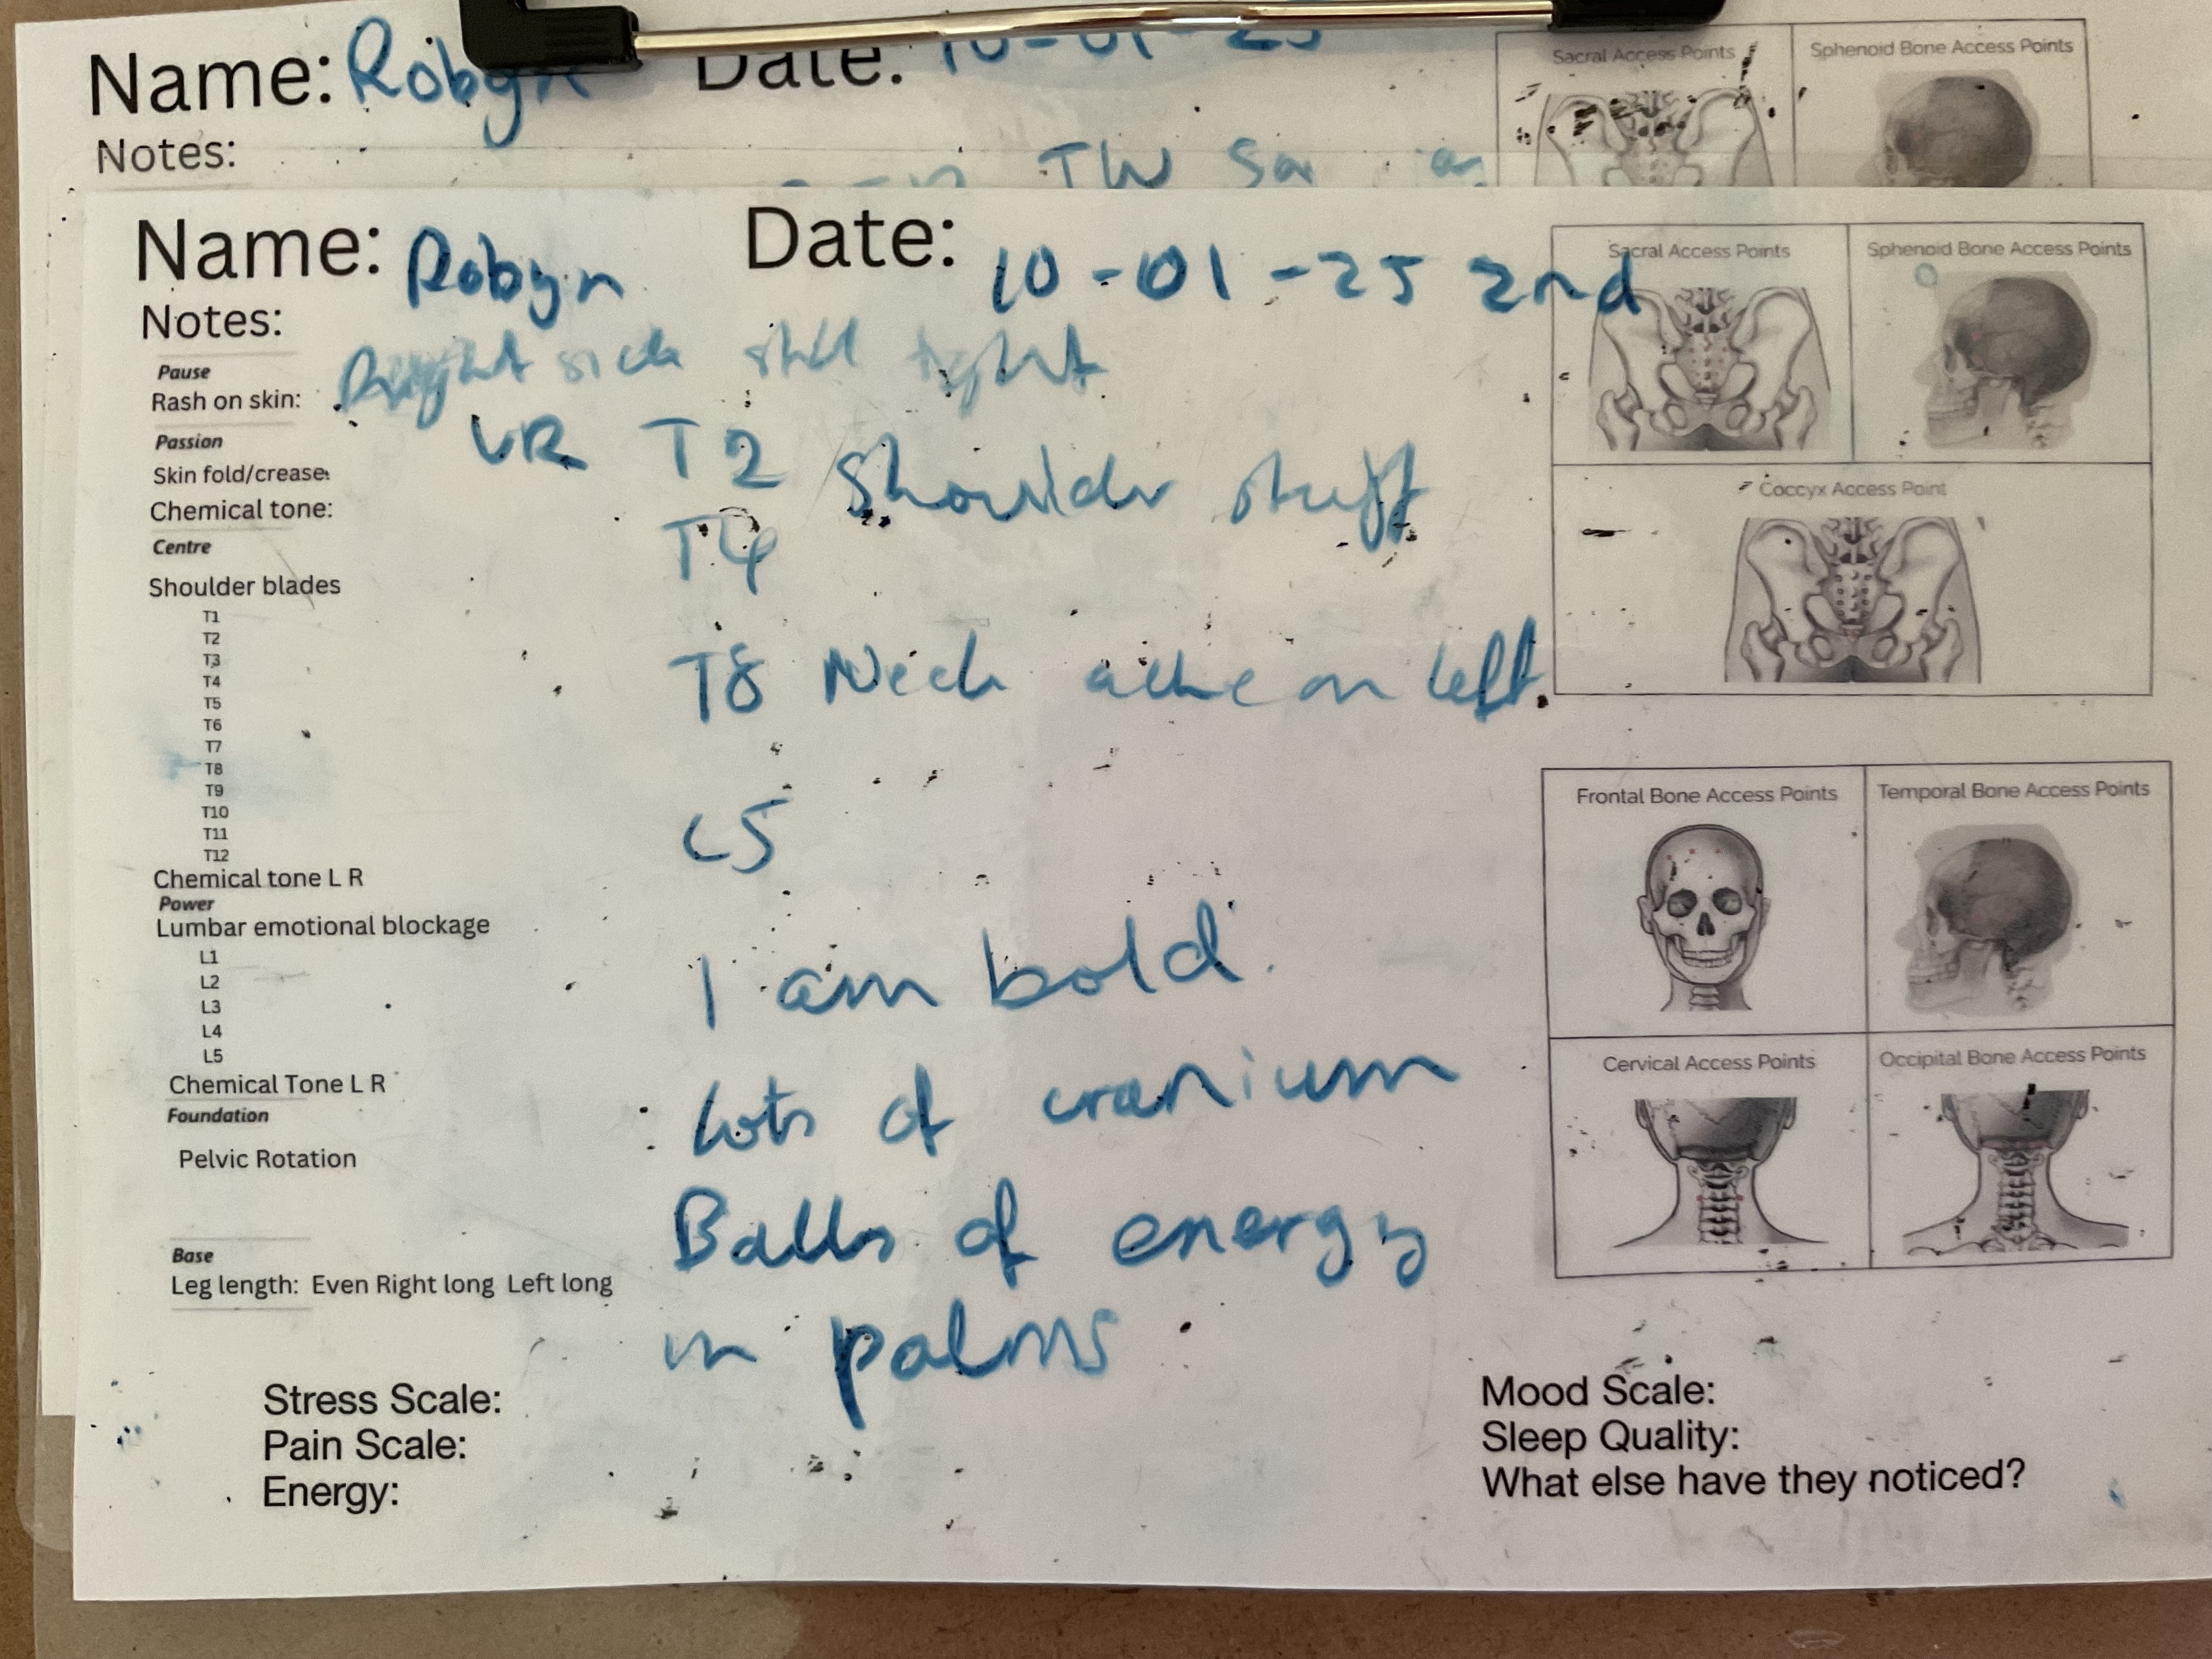 Name: Robyn Date: 10-01-25
Notes:
TW
Sacral Access Points
Sphenoid Bone Access Points
Name: Robyn Date: 10-01-25 2nd
Notes:
Right side still tight
Pause
Rash on skin:
Passion
Skin fold/crease:
Chemical tone:
Centre
Shoulder blades
T1
T2
T3
T4
T5
T6
T7
T8
T9
T10
T11
T12
Chemical tone L R
Power
Lumbar emotional blockage
L1
L2
L3
L4
L5
Chemical Tone L R
Foundation
Pelvic Rotation
Base
Leg length: Even Right long Left long
T2 Shoulder stuff
T4
T8 Neck ache on left.
I am bold.
Lots of cranium
Balls of energy
in palms
Sacral Access Points
Sphenoid Bone Access Points
Coccyx Access Point
Frontal Bone Access Points
Temporal Bone Access Points
Cervical Access Points
Occipital Bone Access Points
Stress Scale:
Pain Scale:
Energy:
Mood Scale:
Sleep Quality:
What else have they noticed?